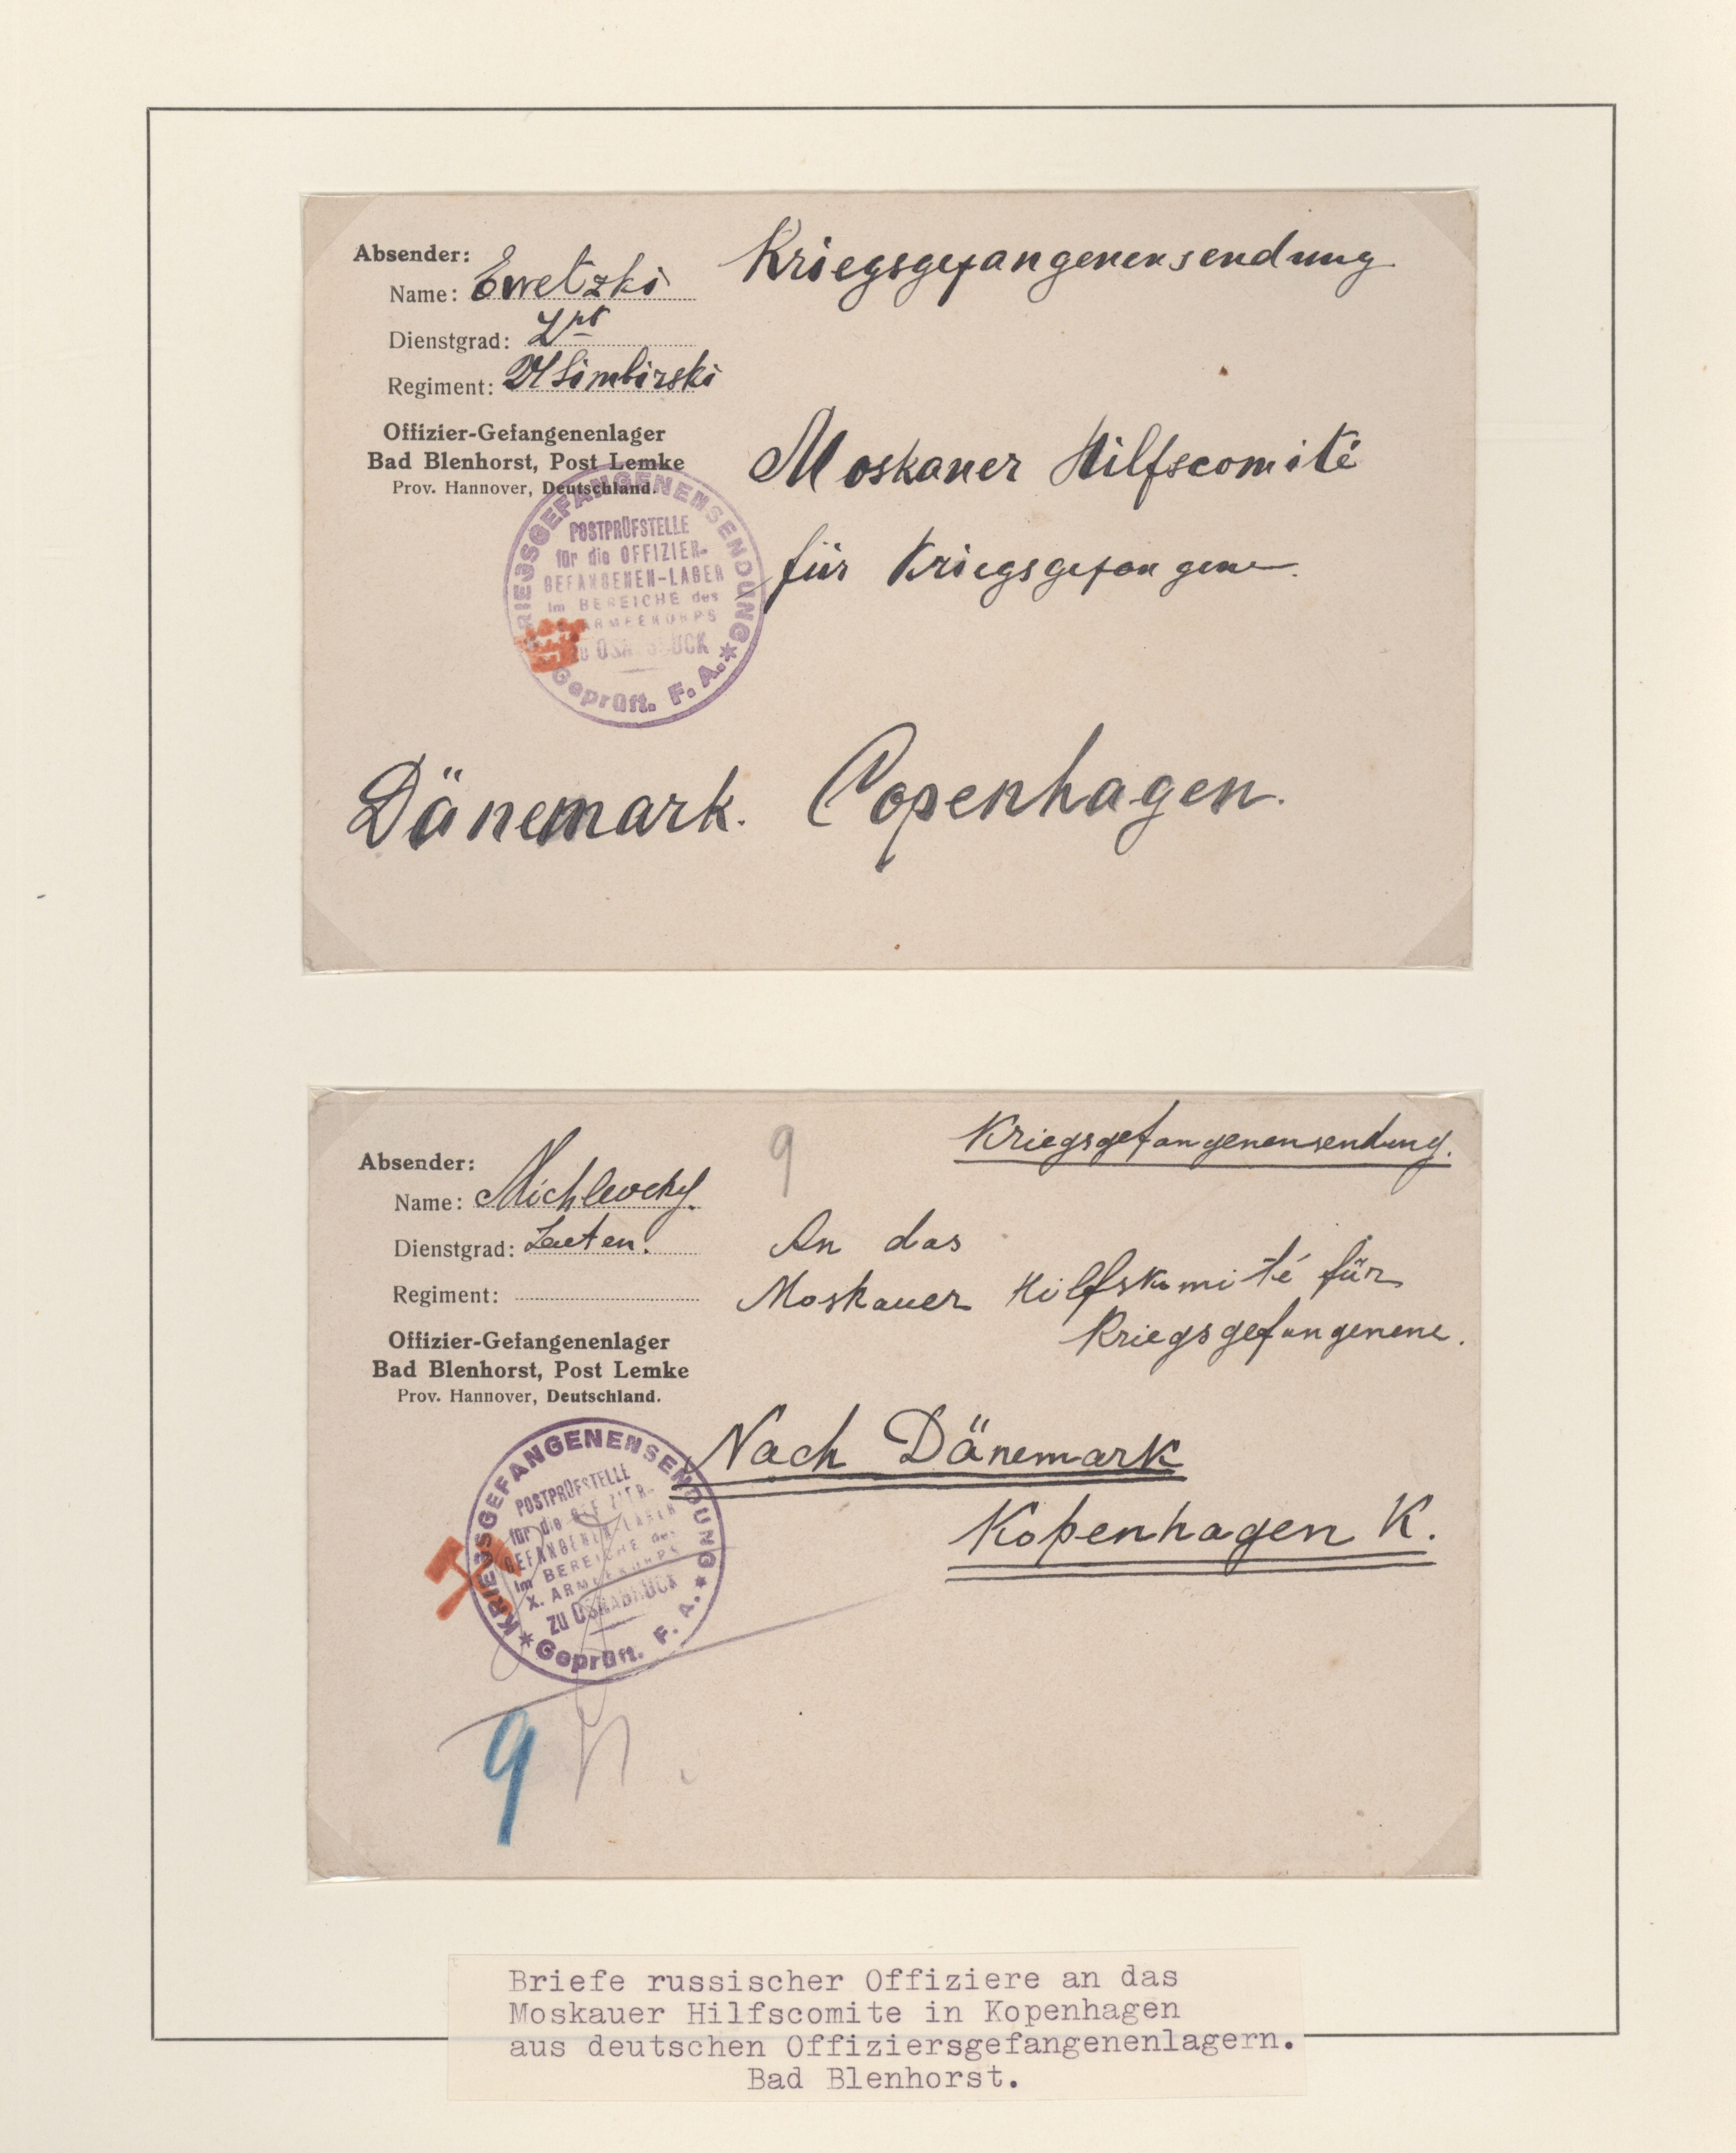 Absender:
Kriegsgefangenensendung
Name: Ewetzki
Dienstgrad:
Regiment: Simbirski
Offizier-Gefangenenlager
Bad Blenhorst, Post Lemke
Prov. Hannover, Deutschland.
Moskauer Hilfscomité
für Kriegsgefangene.
KRIEGSGEFANGENENSENDUNG *
POSTPRÜFSTELLE
für die OFFIZIER-
GEFANGENEN-LAGER
im BEREICHE des
ARMEEKORPS
zu OSNABRÜCK
Geprüft. F. A. *
Dänemark. Copenhagen.
9
Kriegsgefangenensendung.
Absender:
Name: Michlevcky.
Dienstgrad:
Regiment:
Offizier-Gefangenenlager
Bad Blenhorst, Post Lemke
Prov. Hannover, Deutschland.
An das
Moskauer Hilfskomité für
Kriegsgefangenene.
Nach Dänemark
Kopenhagen K.
* KRIEGSGEFANGENENSENDUNG *
POSTPRÜFSTELLE
für die OFFIZIER-
GEFANGENEN-LAGER
im BEREICHE des
X. ARMEEKORPS
zu OSNABRÜCK
Geprüft. F. A.
9
Briefe russischer Offiziere an das
Moskauer Hilfscomite in Kopenhagen
aus deutschen Offiziersgefangenenlagern.
Bad Blenhorst.